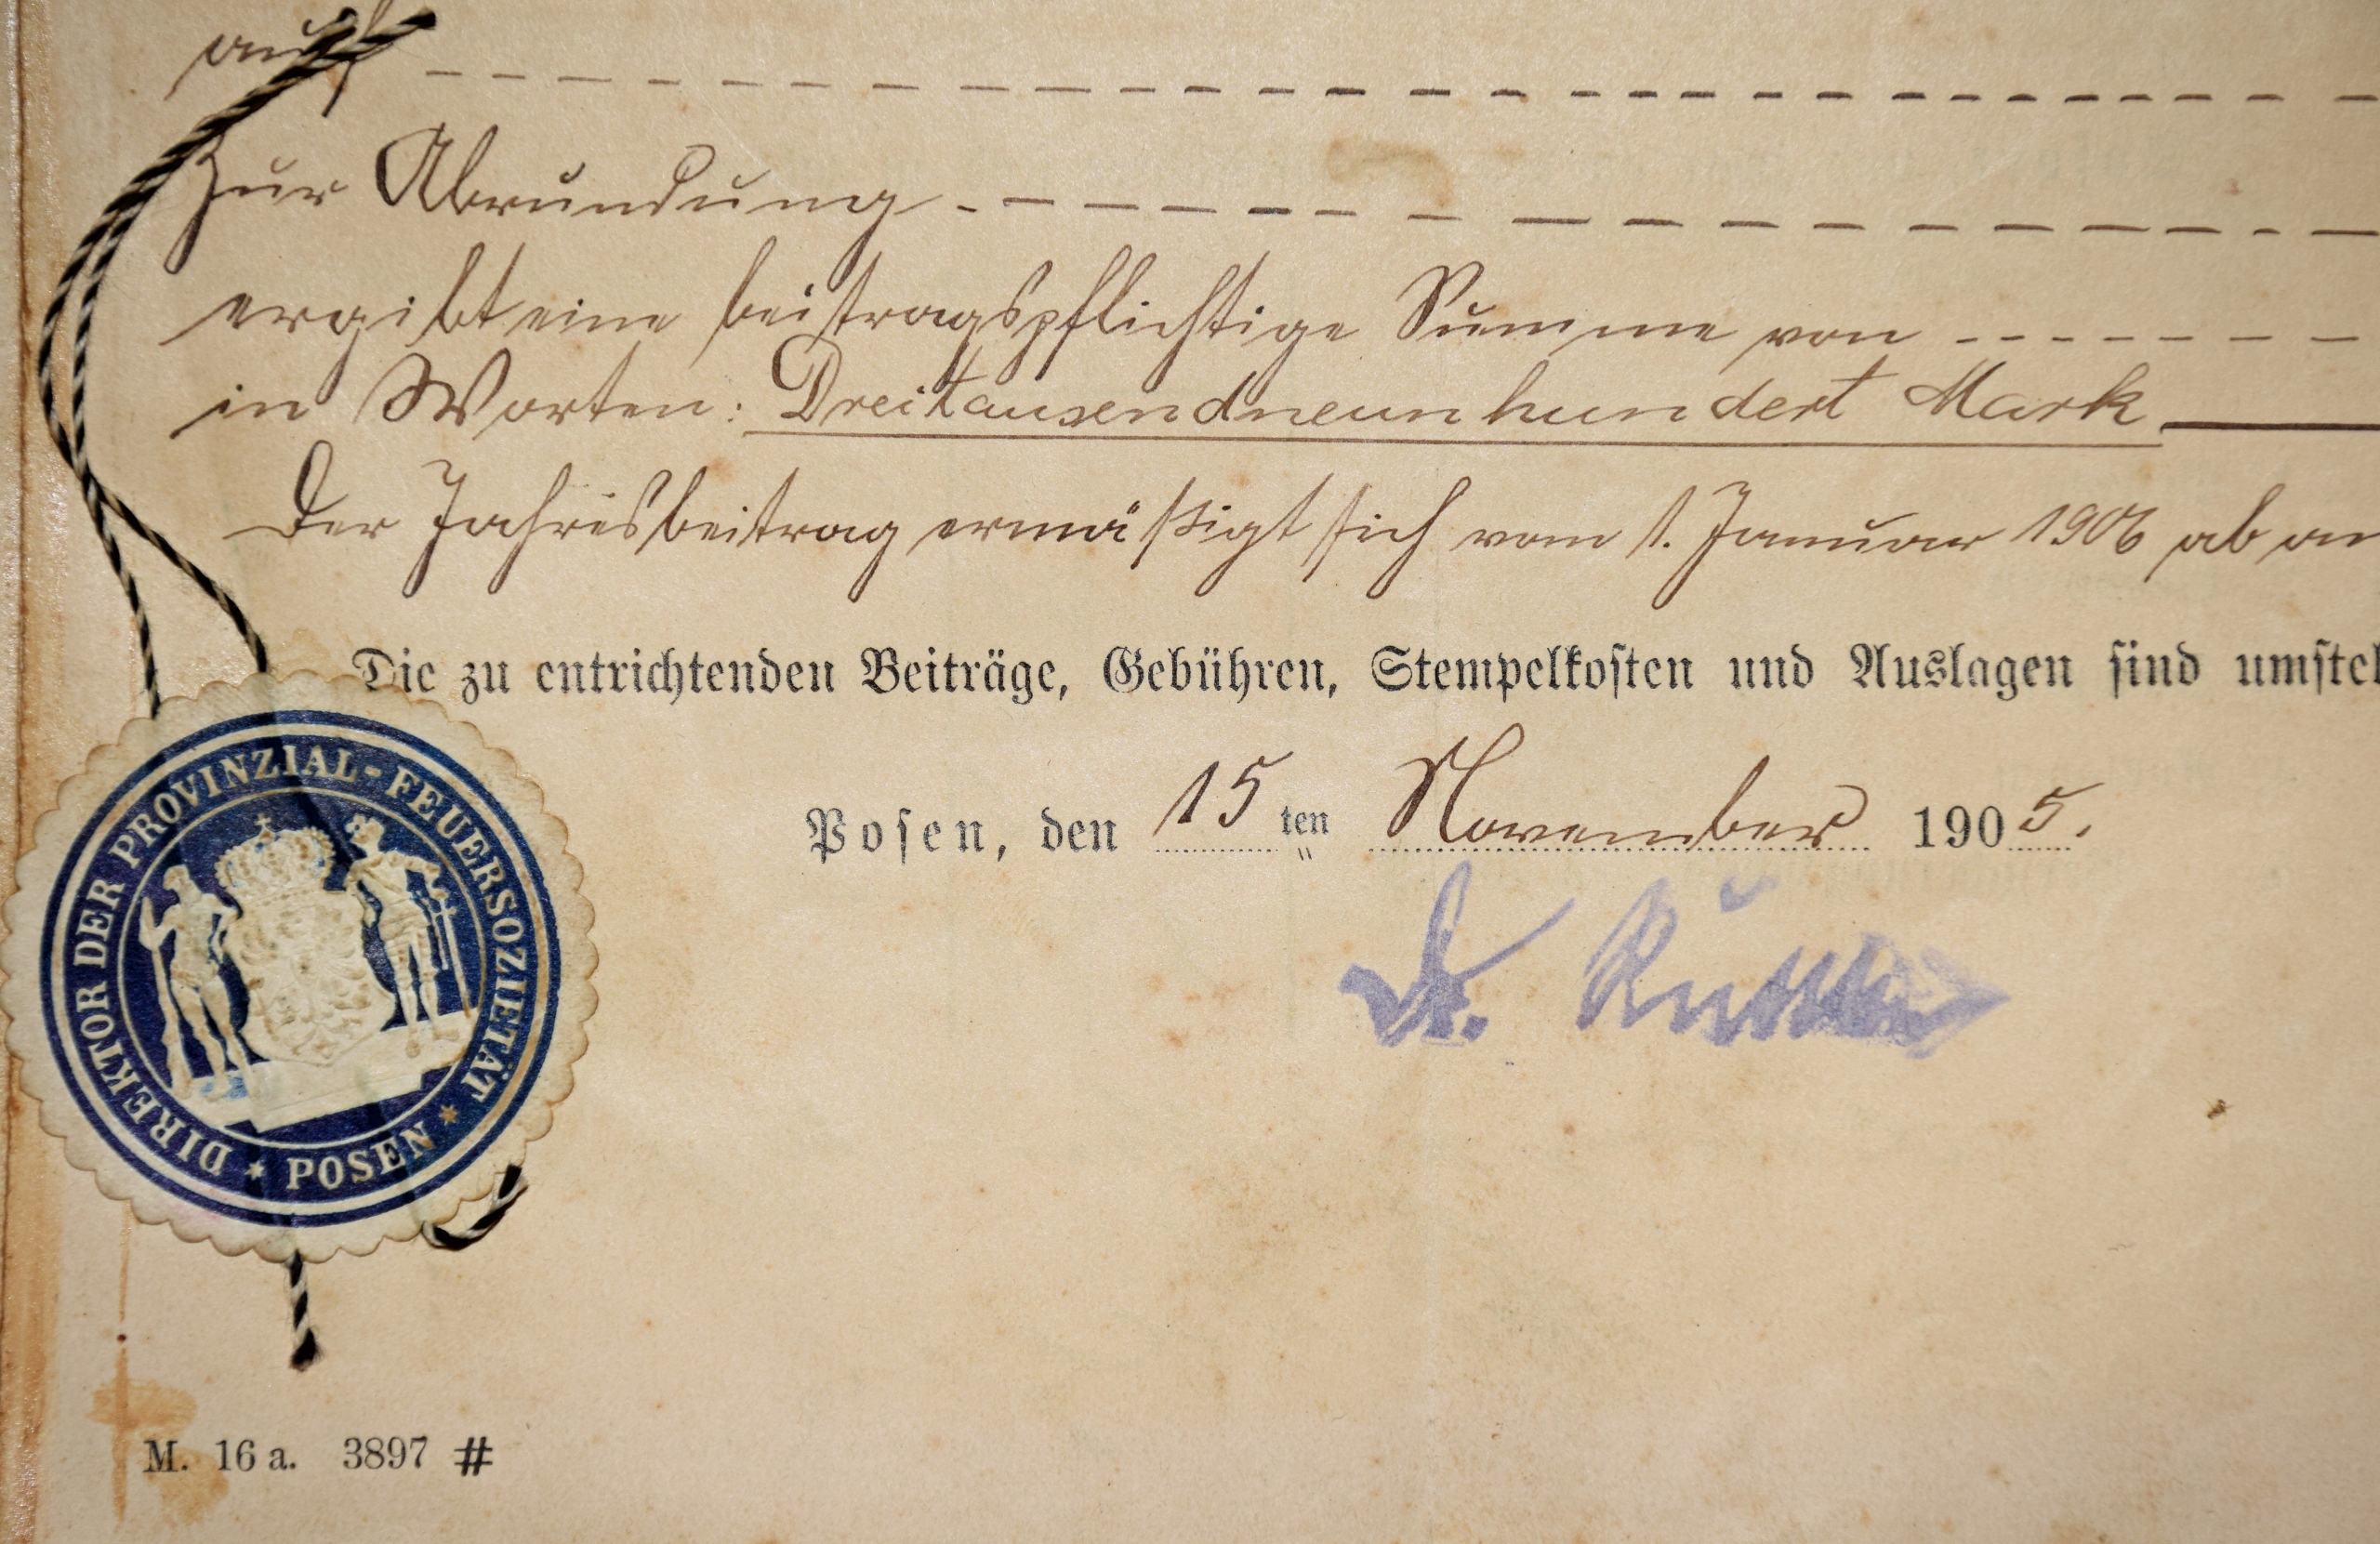 auf
zur Abrundung
ergibt eine beitragspflichtige Summe von
in Worten: Dreitausendneunhundert Mark
Der Jahresbeitrag ermäßigt sich vom 1. Januar 1906 ab
Die zu entrichtenden Beiträge, Gebühren, Stempelkosten und Auslagen sind umstel
Posen, den 15ten November 1905.
Dr.
DIREKTOR DER PROVINZIAL-FEUERSOZIETÄT * POSEN *
M. 16 a. 3897 #